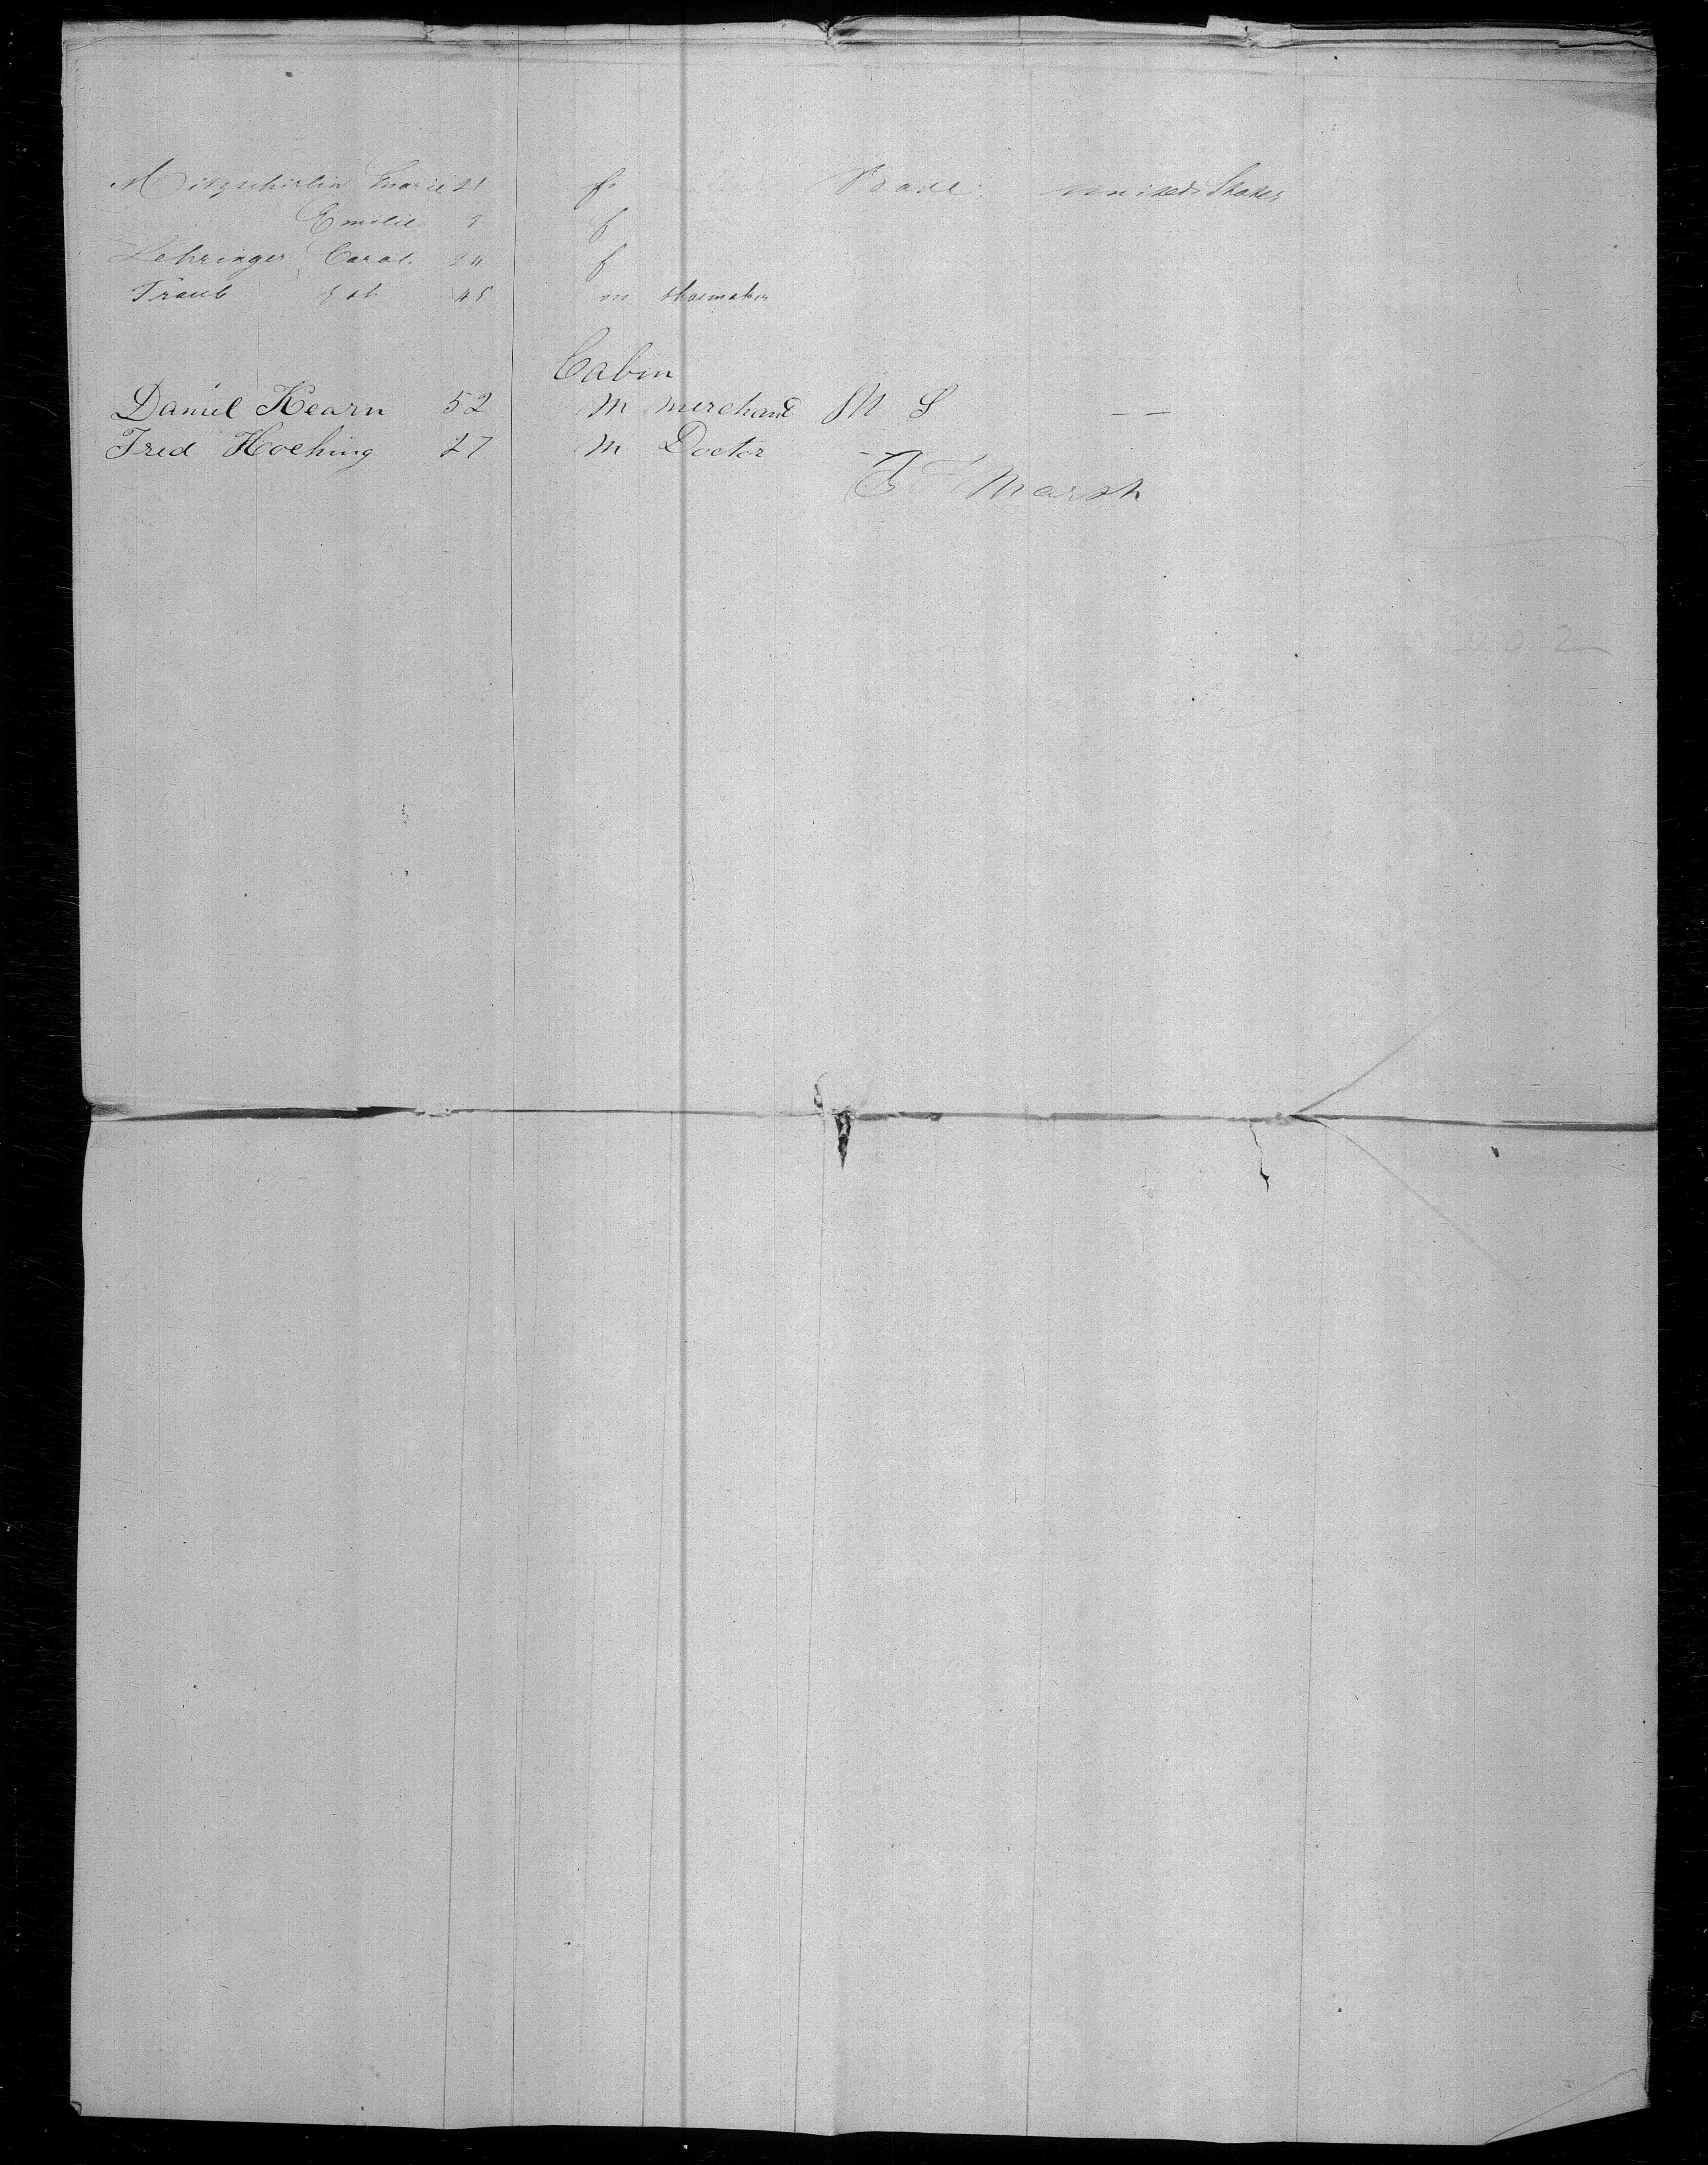 Mitzschirlin Marie 21 f Bade United States
Emilie 9 f
Lehringer Carol. 24 f
Traub 45 m shoemaker
Cabin
Daniel Kearn 52 M merchant U S — —
Fred Hoehing 27 M Doctor - -
E F Marsh
402